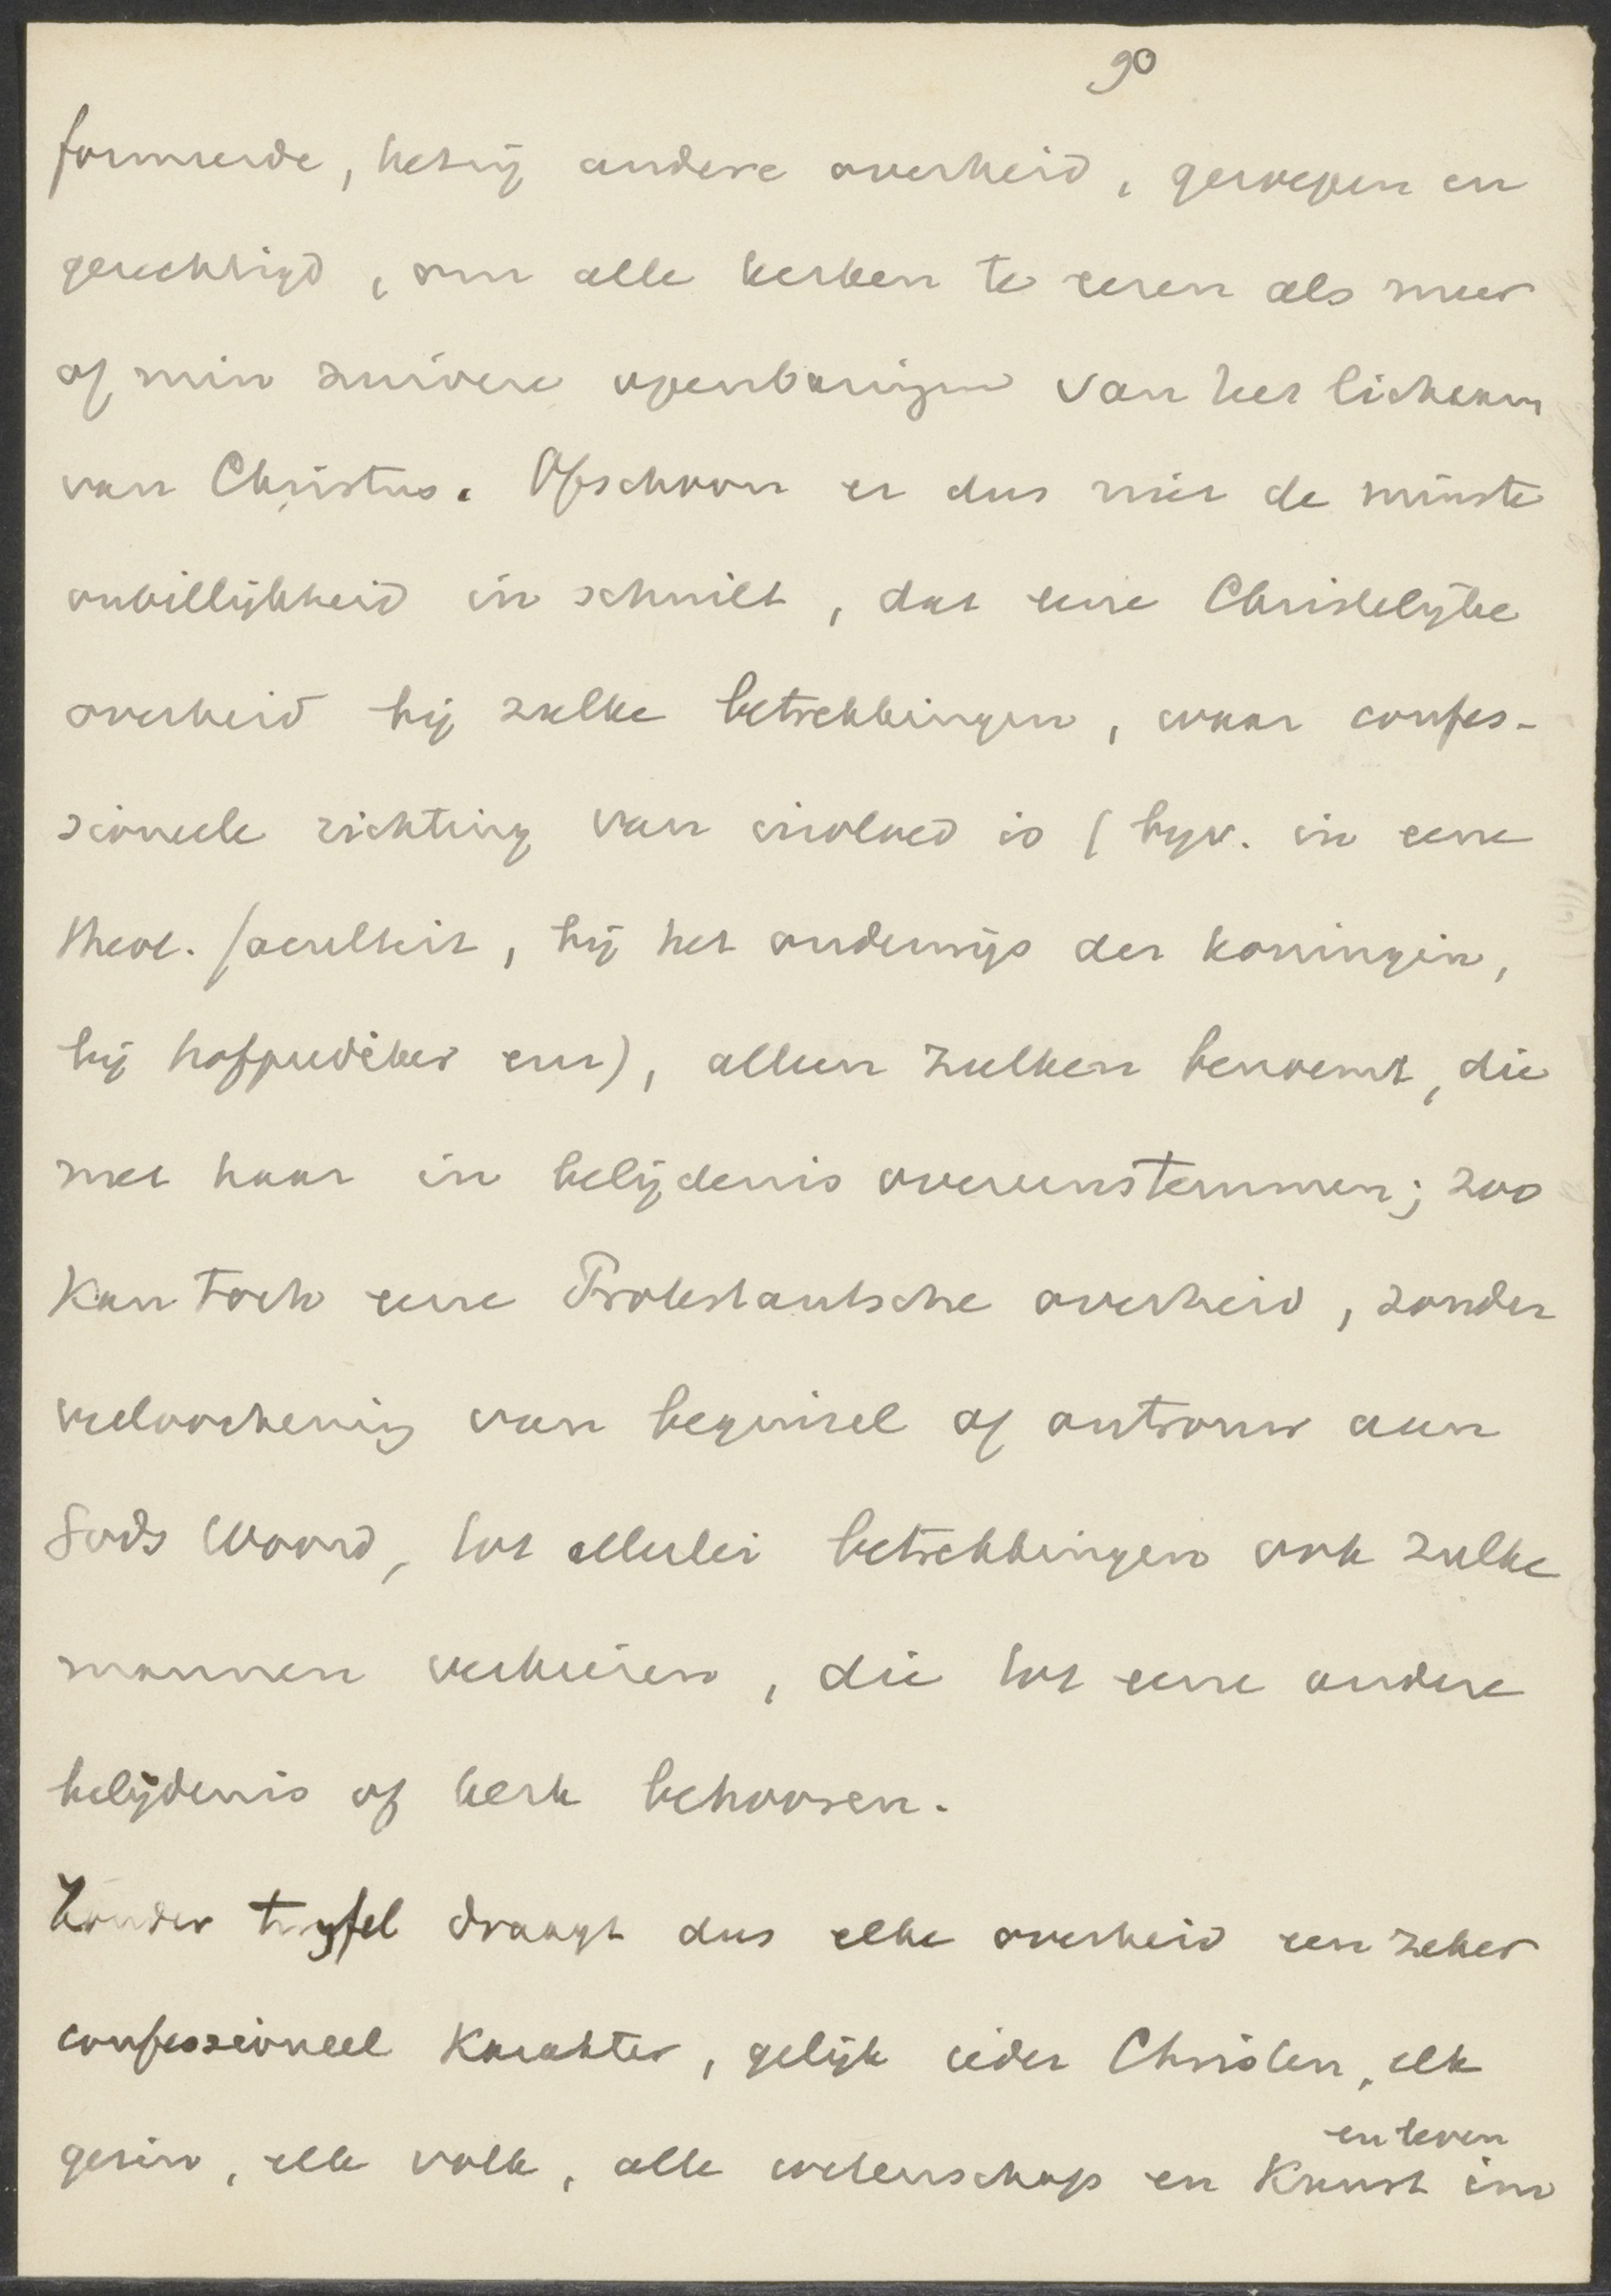 90
formeerde, hetzij andere overheid, geroepen en
gerechtigd, om alle kerken te eeren als meer
of min zuivere openbaringen van het lichaam
van Christus. Ofschoon er dus niet de minste
onbillijkheid in schuilt, dat eene Christelijke
overheid bij zulke betrekkingen, waar confes-
sioneele richting van invloed is (bijv. in eene
theol. faculteit, bij het onderwijs der koningin,
bij hofprediker enz), alleen zulken benoemt, die
met haar in belijdenis overeenstemmen; zoo
kan toch eene Protestantsche overheid, zonder
verloochening van beginsel of ontrouw aan
Gods Woord, tot allerlei betrekkingen ook zulke
mannen verkiezen, die tot eene andere
belijdenis of kerk behooren.
Zonder twyfel draagt dus elke overheid een zeker
confessioneel karakter, gelijk ieder Christen, elk
en leven
gezin, elk volk, alle wetenschap en kunst